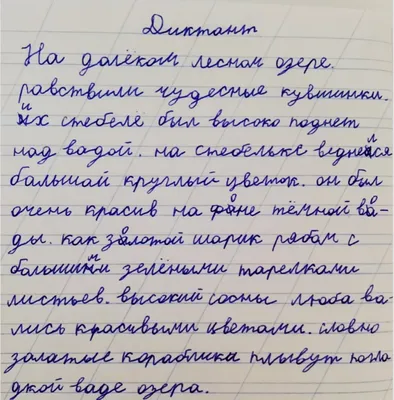 Диктант
На далёком лесном озере.
равствили чудесные кувшинки.
их стебелё был высоко поднет
над вадой. на стебельке веднелся
балышай круглый цветок. он был
очень красив на фоне тёмной во-
ды. как золотой шарик рябам с
балышими зелёными тарелками
листьев. высокий сосны люба ва-
лись красивыми цветами. словно
залатые кораблики плывут погла
дкой ваде озера.